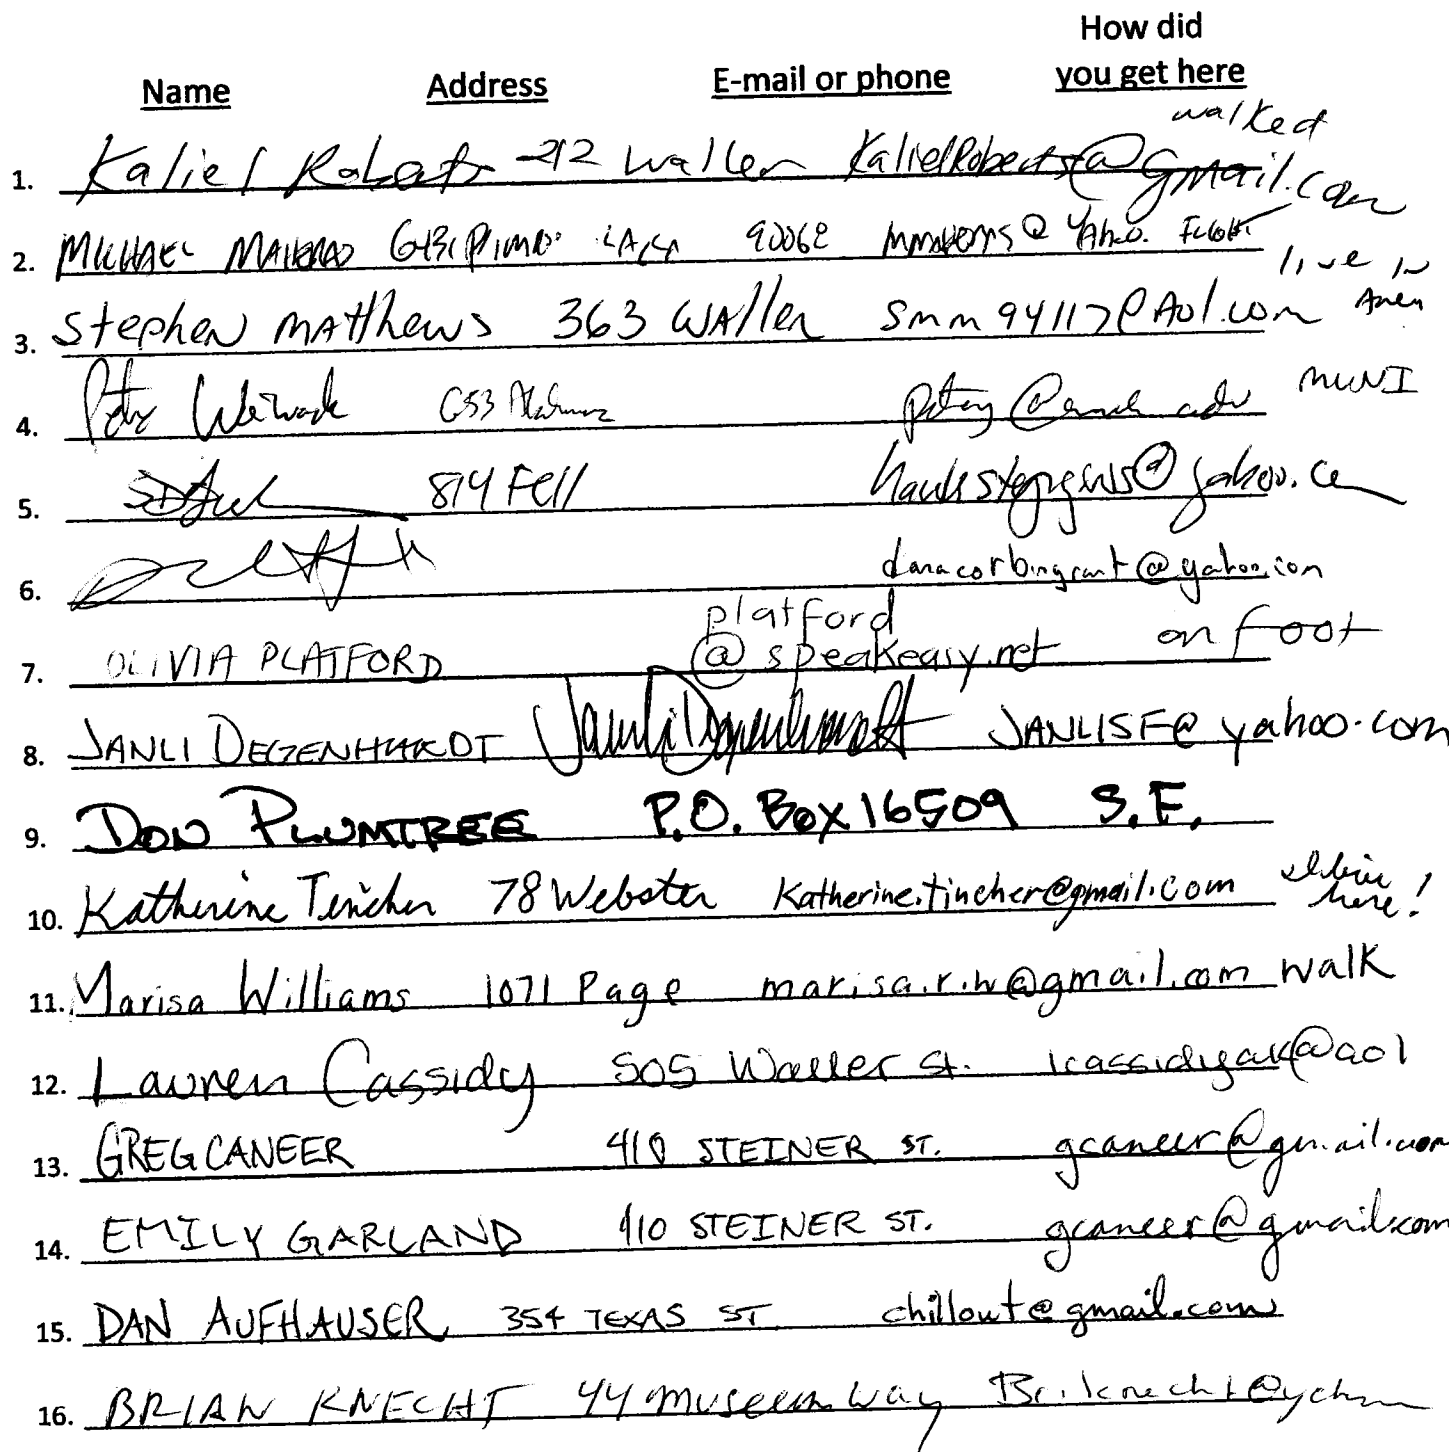 How did
Name Address E-mail or phone you get here
walked
1. Kaliel Roberts 212 Waller KalielRoberts@Gmail.com
2. MICHAEL 90062 @ Yahoo.
live in Area
3. Stephen Matthews 363 Waller smm94117@Aol.com
4. Peter MUNI
5. 814 Fell @yahoo.com
6. danacorbingrant@yahoo.com
platford
7. OLIVIA PLATFORD @speakeasy.net on foot
8. JANLI DEGENHARDT Janli Degenhardt JANLISF@yahoo.com
9. DON PLUMTREE P.O. Box 16509 S.F.
10. Katherine Tincher 78 Webster Katherine.tincher@gmail.com I live here!
11. Marisa Williams 1071 Page marisa.r.w@gmail.com walk
12. Lauren Cassidy 505 Waller St. lcassidyak@aol
13. GREG CANEER 410 STEINER ST. gcaneer@gmail.com
14. EMILY GARLAND 410 STEINER ST. gcaneer@gmail.com
15. DAN AUFHAUSER 354 TEXAS ST chillout@gmail.com
16. BRIAN KNECHT 44 Museum Way